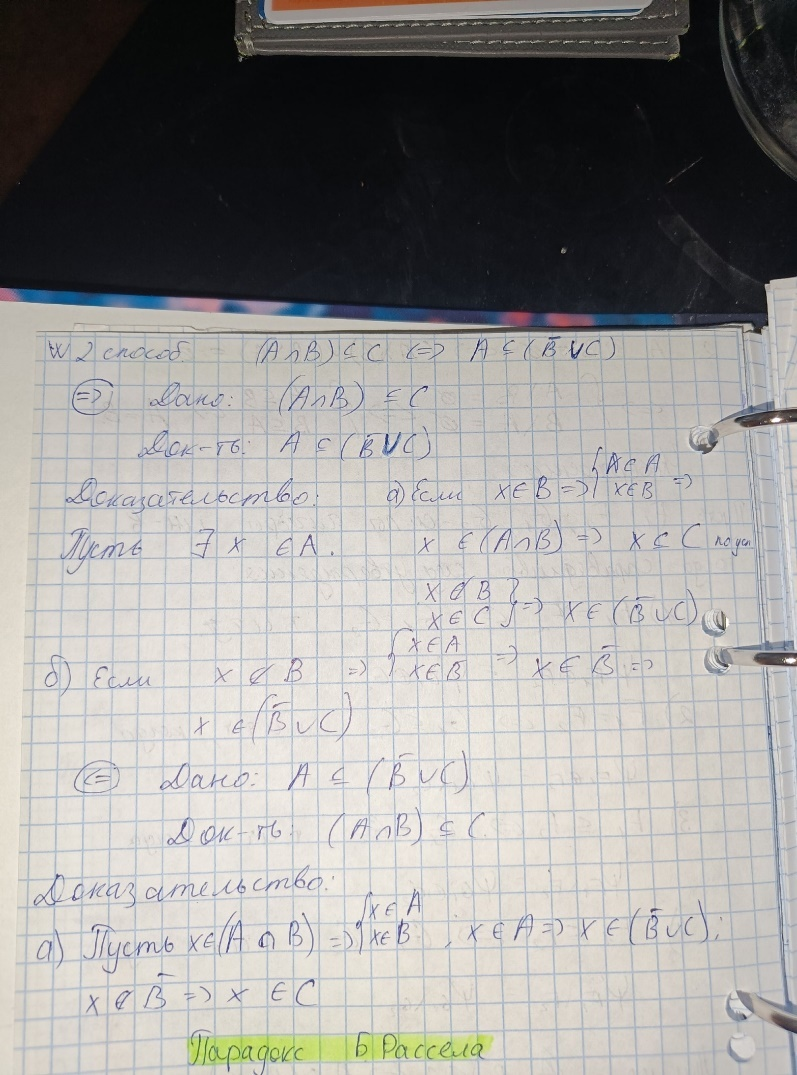 2 способ (A∩B)⊆C <=> A⊆(B̅∪C)
=> Дано: (A∩B)⊆C
Док-ть: A⊆(B̅∪C)
Доказательство: а) Если x∈B => { x∈A x∈B =>
Пусть ∃ x ∈A. x ∈(A∩B) => x⊆C по усл.
x∉B̅ x∈C } => x∈(B̅∪C)
б) Если x∉B => { x∈A x∈B̅ => x∈B̅ =>
x ∈(B̅∪C)
<= Дано: A⊆(B̅∪C)
Док-ть: (A∩B)⊆C
Доказательство:
а) Пусть x∈(A∩B) => { x∈A x∈B , x∈A => x∈(B̅∪C);
x∉B̅ => x ∈C
Парадокс Б Рассела